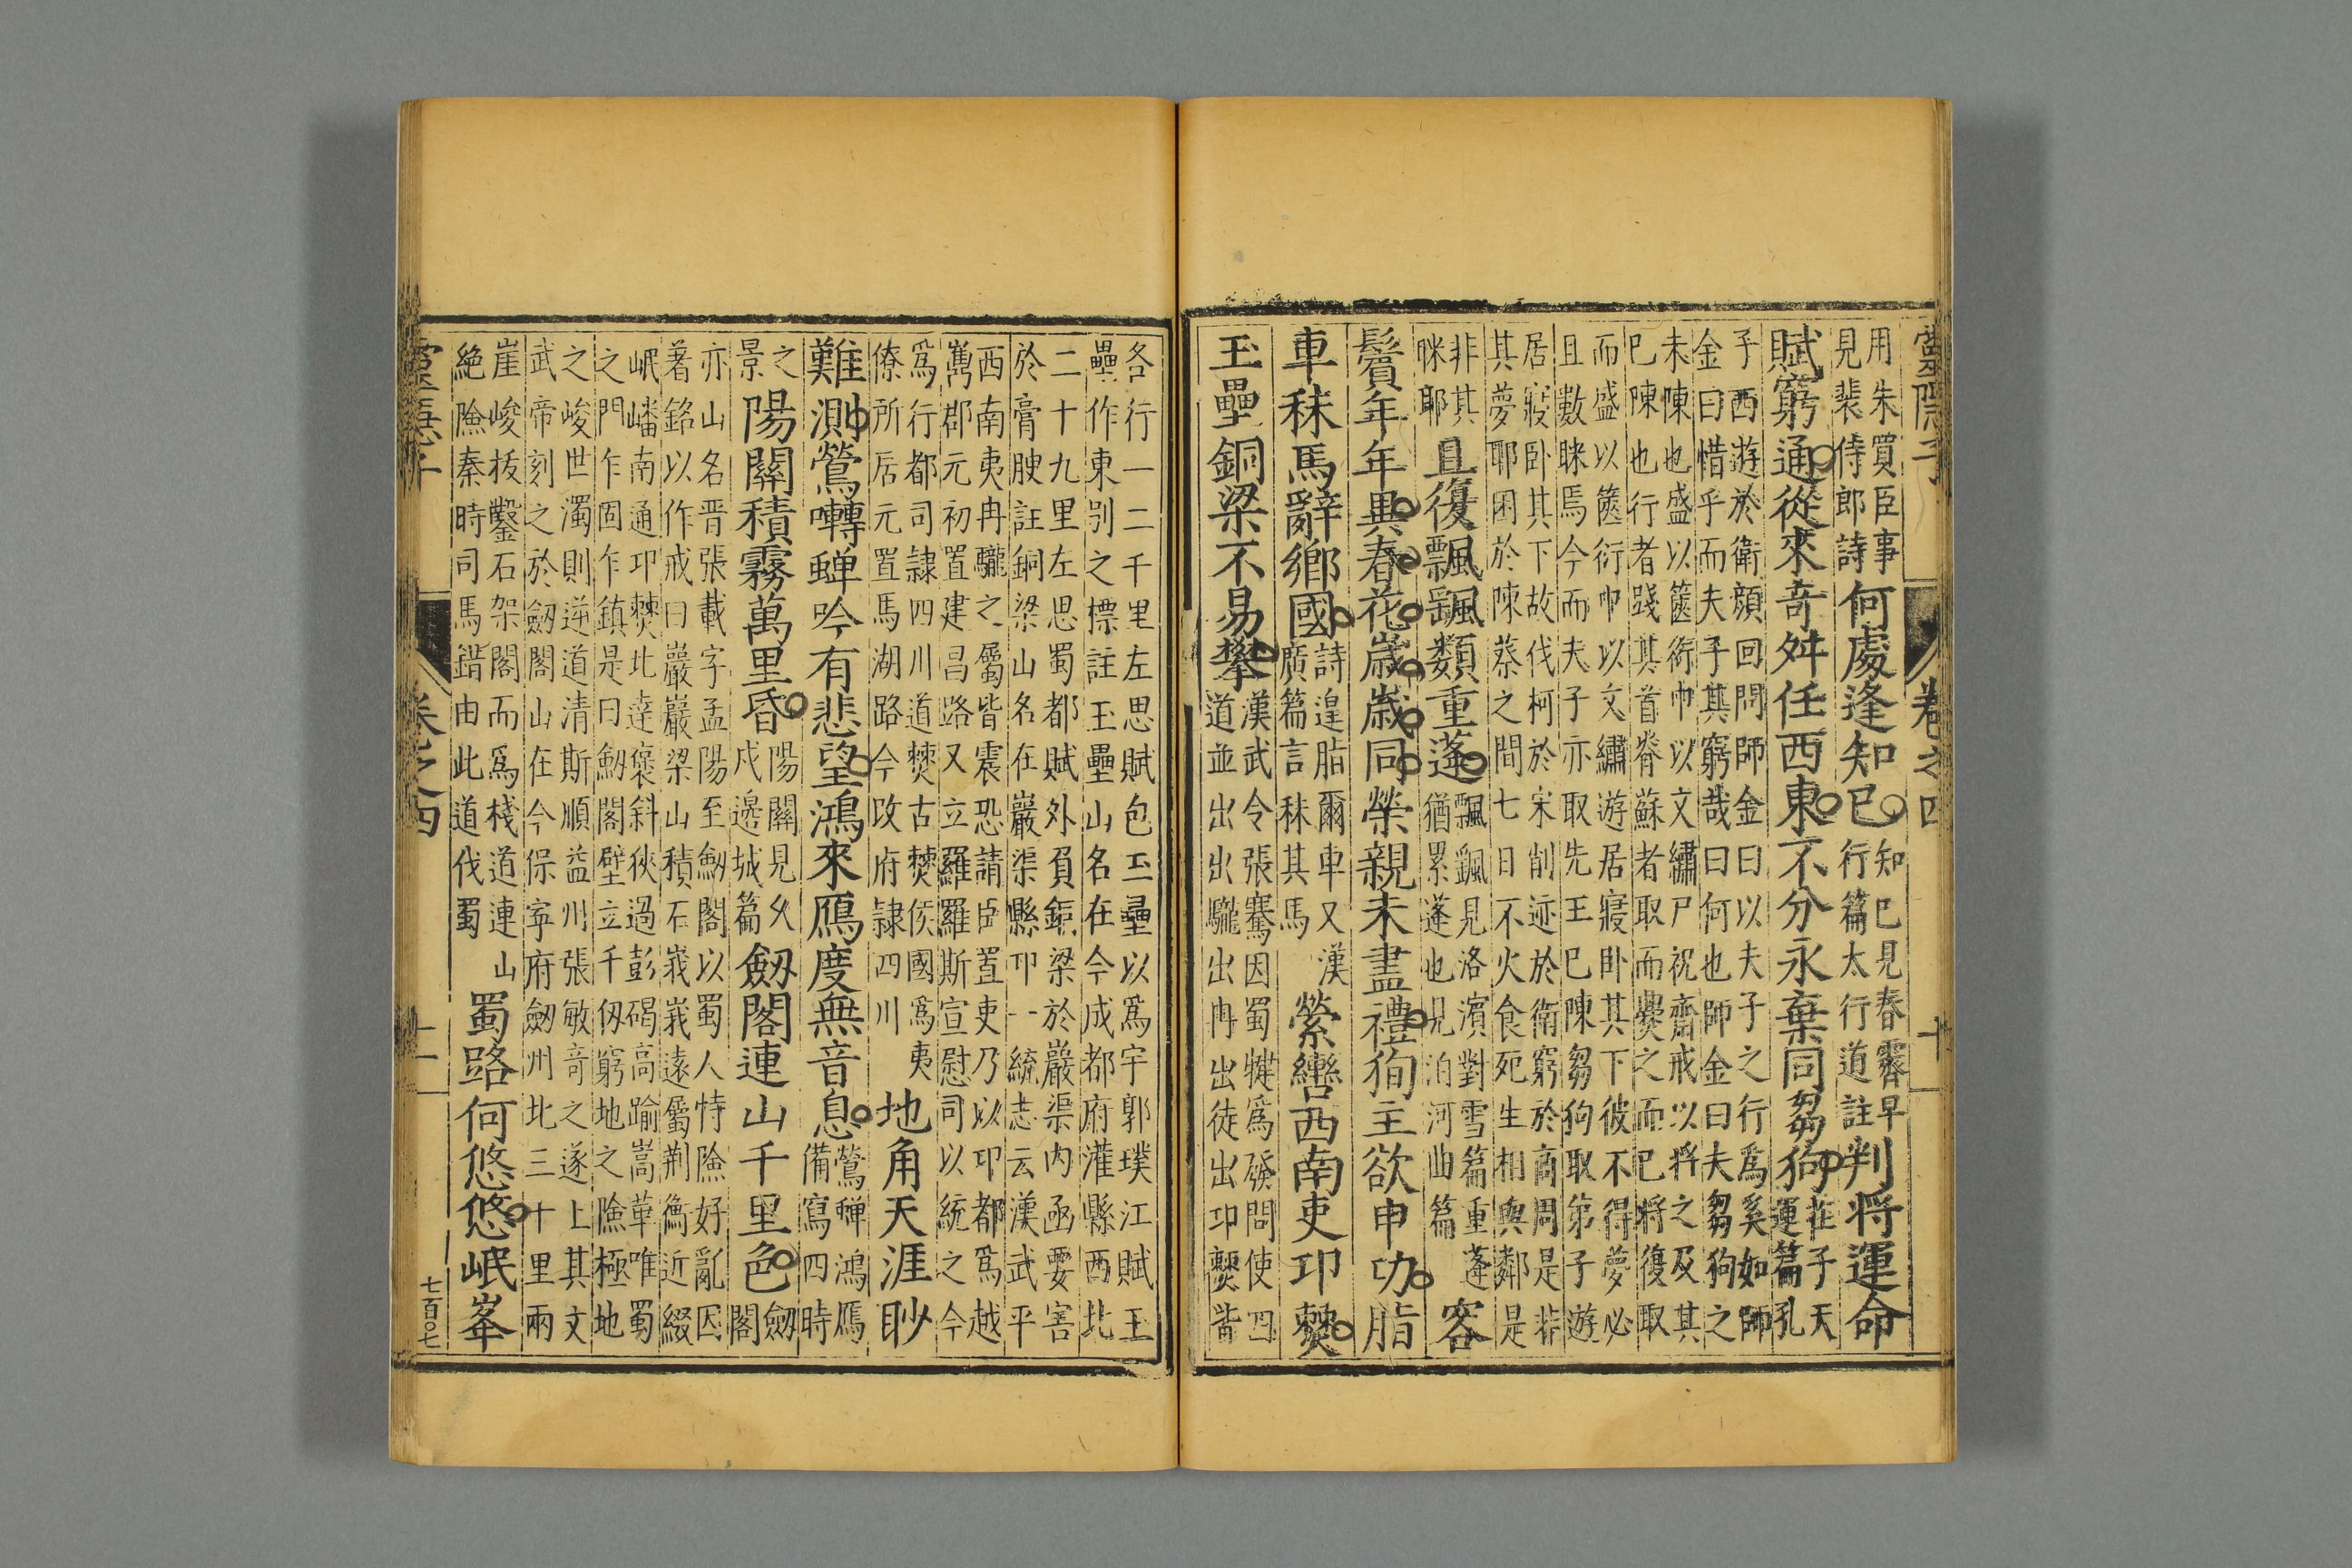 靈隱子　卷之四　十
用朱買臣事
見裴侍郎詩
何處逢知己
知己見春霽早
行篇太行道註
判將運命
賦窮通從來奇舛任西東不分永棄同芻狗
莊子天
運篇孔
子西遊於衛顔回問師金曰以夫子之行爲奚如師
金曰惜乎而夫子其窮哉曰何也師金曰夫芻狗之
未陳也盛以篋衍巾以文繡尸祝齋戒以將之及其
已陳也行者踐其首脊蘇者取而爨之而已將復取
而盛以篋衍巾以文繡遊居寢卧其下彼不得夢必
且數眯焉今而夫子亦取先王已陳芻狗取弟子遊
居寢卧其下故伐柯於宋削迹於衛窮於商周是非
其夢耶困於陳蔡之間七日不火食死生相與鄰是
非其
眯耶
且復飄飄類重蓬
飄飄見洛濱對雪篇重蓬
猶累蓬也見泊河曲篇
容
鬢年年異春花歲歲同榮親未盡禮狥主欲申功脂
車秣馬辭鄉國
詩遑脂爾車又漢
廣篇言秣其馬
縈轡西南吏卭僰
玉壘銅梁不易攀
漢武令張騫因蜀犍爲發間使四
道並出出駹出冉出徒出卭僰皆
各行一二千里左思賦包玉壘以爲宇郭璞江賦玉
壘作東别之標註玉壘山名在今成都府灌縣西北
二十九里左思蜀都賦外負銅梁於巖渠内函要害
於膏腴註銅梁山名在巖渠縣卭一統志云漢武平
西南夷冉駹之屬皆震恐請臣置吏乃以卭都爲越
嶲郡元初置建昌路又立羅羅斯宣慰司以統之今
爲行都司隷四川道僰古僰侯國爲夷
僚所居元置馬湖路今改府隷四川
地角天涯眇
難測鶯囀蟬吟有悲望鴻來鴈度無音息
鶯蟬鴻鴈
備寫四時
之
景
陽關積霧萬里昏
陽關見久
戍邊城篇
劔閣連山千里色
劔
閣
亦山名晉張載字孟陽至劔閣以蜀人恃險好亂因
著銘以作戒曰巖巖梁山積石峩峩遠屬荆衡近綴
岷嶓南通卭僰北達褒斜狹過彭碣高踰嵩華唯蜀
之門作固作鎮是曰劔閣壁立千仭窮地之險極地
之峻世濁則逆道清斯順益州張敏奇之遂上其文
武帝刻之於劔閣山在今保寧府劔州北三十里兩
崖峻拔鑿石架閣而爲棧道連山
絶險秦時司馬錯由此道伐蜀
蜀路何悠悠岷峯
卷之四　十一　七百〇七